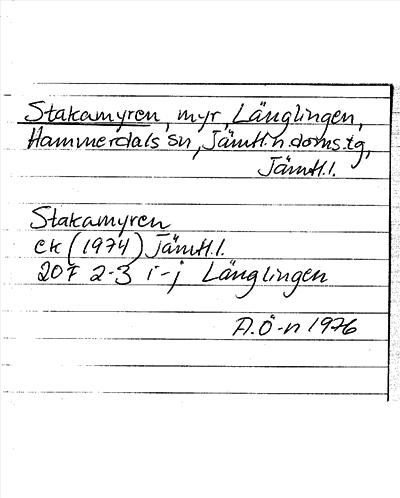 Stakamyren, myr, Länglingen,
Hammerdals sn, Jämtl. n. doms.tg,
Jämtl.l.
Stakamyren
ek (1974) Jämtl.l.
20F 2-3 i-j Länglingen
A.Ö-n 1976